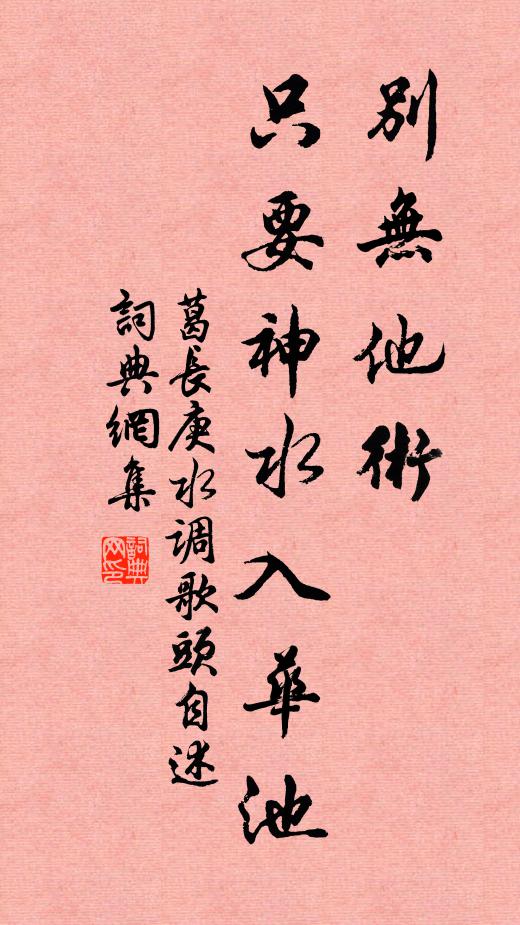 別無他術
只要神水入華池
葛長庚水调歌頭自述
詞典網集
詞典
网印